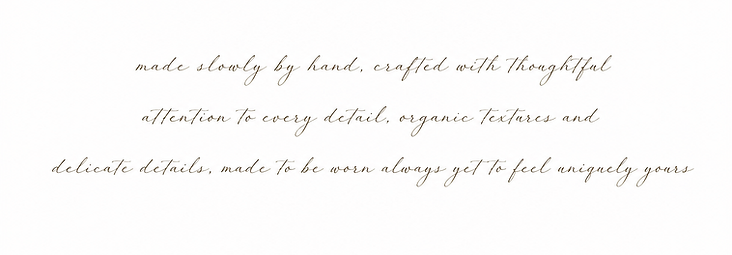 made slowly by hand, crafted with thoughtful
attention to every detail, organic textures and
delicate details, made to be worn always yet to feel uniquely yours